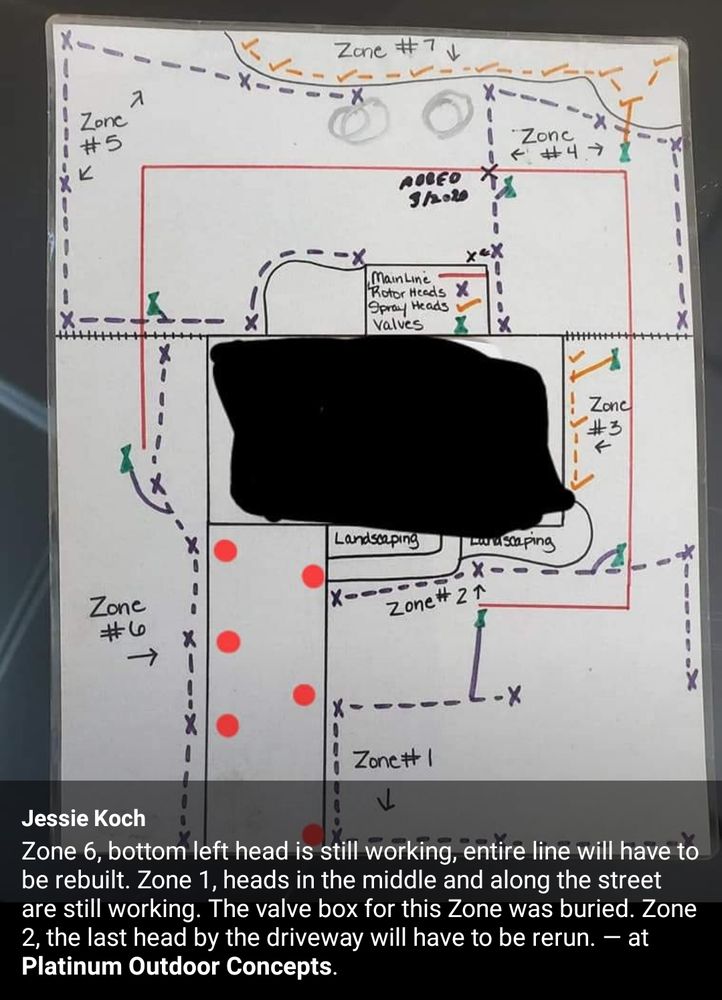 Zone #7
Zone
#5
Zone
#4
ADDED
9/2020
Main Line
Rotor Heads
Spray Heads
Valves
Zone
#3
Landscaping
Landscaping
Zone #2
Zone
#6
Zone #1
Jessie Koch
Zone 6, bottom left head is still working, entire line will have to
be rebuilt. Zone 1, heads in the middle and along the street
are still working. The valve box for this Zone was buried. Zone
2, the last head by the driveway will have to be rerun. — at
Platinum Outdoor Concepts.